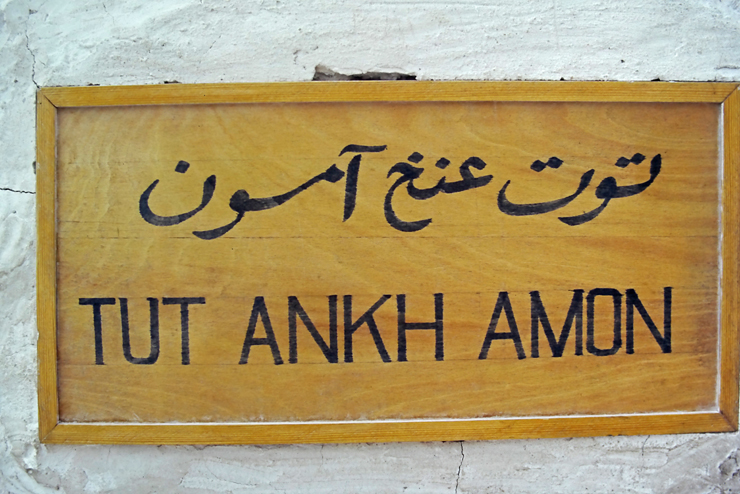 توت عنخ آمون
TUT ANKH AMON